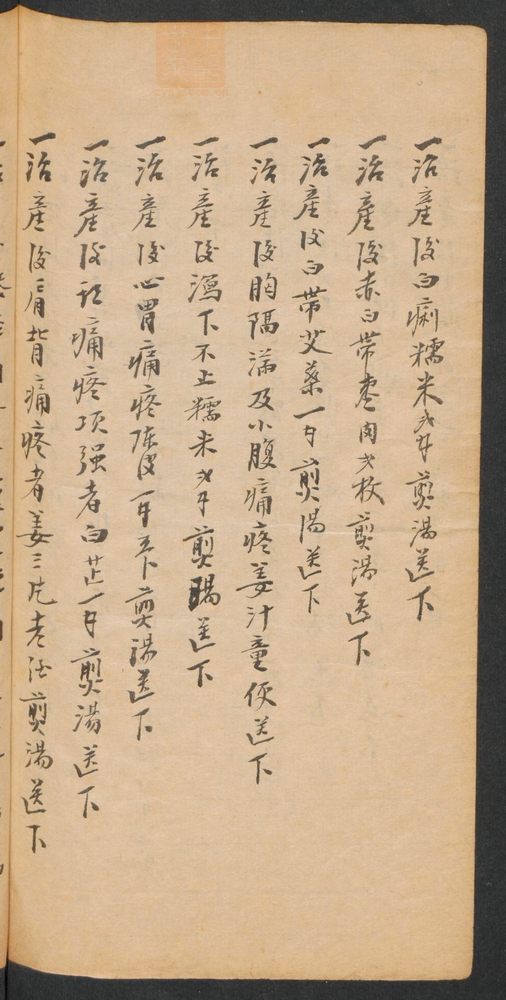 一治產後白痢糯米弍不煎湯送下
一治產後赤白帶枣肉弍枚煎湯送下
一治產後白帶艾葉一不煎湯送下
一治產後胸隔滿及小腹痛疼姜汁童便送下
一治產後瀉下不止糯米弍不煎湯送下
一治產後心胃痛疼陳皮一不煎湯送下
一治產後頭痛疼項强者白芷一不煎湯送下
一治產後肩背痛疼者姜三片老煎湯送下